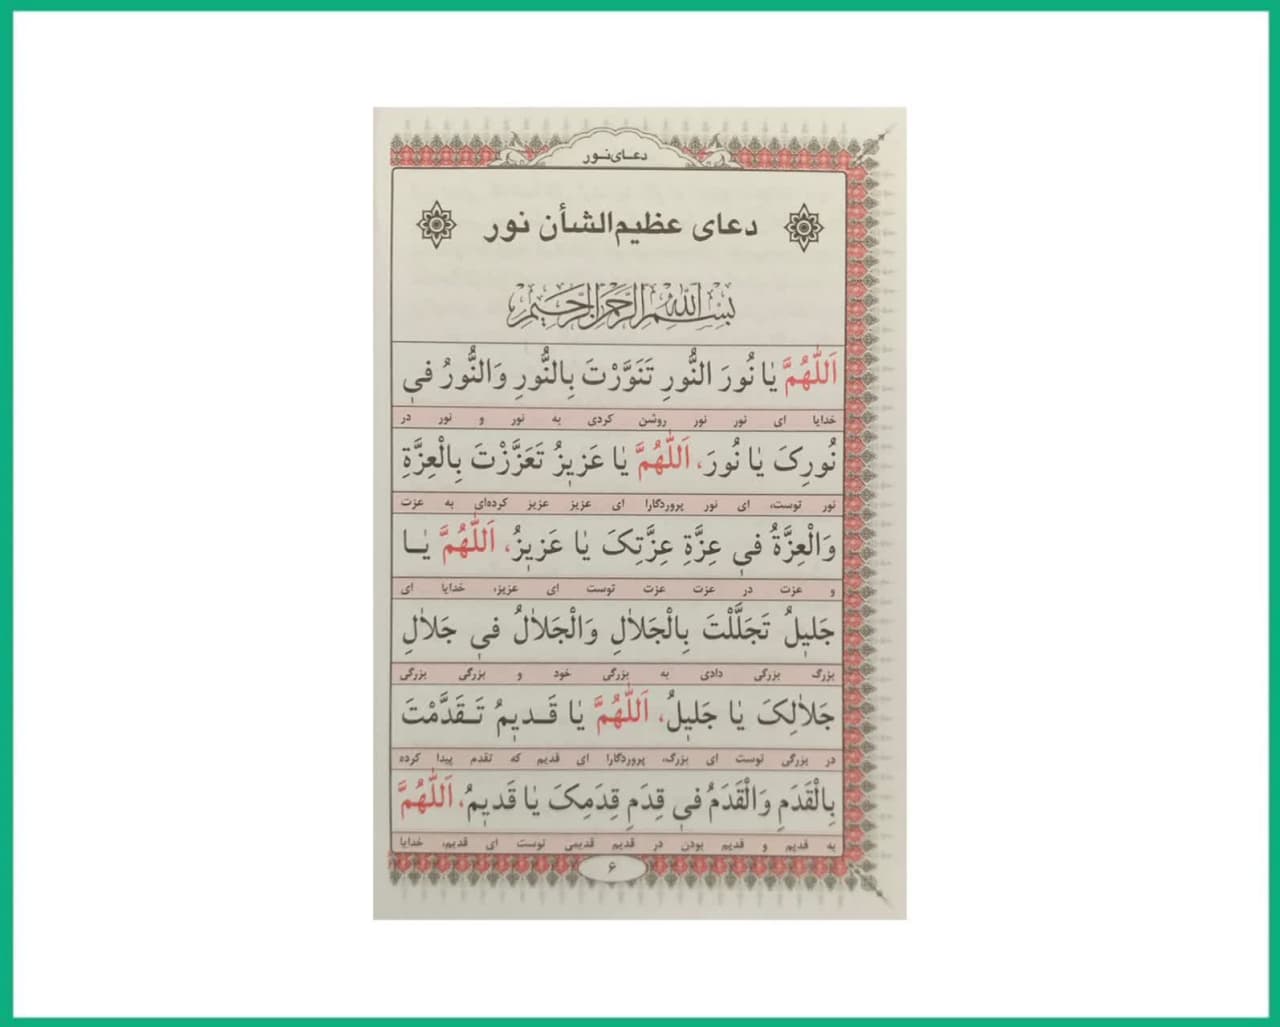 دعای نور
دعای عظیم‌الشأن نور
بسم الله الرحمن الرحیم
اَللّٰهُمَّ یٰا نُورَ النُّورِ تَنَوَّرْتَ بِالنُّورِ وَالنُّورُ فٖی
خدایا ای نور نور روشن کردی به نور و نور در
نُورِکَ یٰا نُورَ، اَللّٰهُمَّ یٰا عَزٖیزُ تَعَزَّزْتَ بِالْعِزَّةِ
نور توست، ای نور پروردگارا ای عزیز عزیز کرده‌ای به عزت
وَالْعِزَّةُ فٖی عِزَّةِ عِزَّتِکَ یٰا عَزٖیزُ، اَللّٰهُمَّ یٰـا
و عزت در عزت عزت توست ای عزیز، خدایا ای
جَلٖیلُ تَجَلَّلْتَ بِالْجَلاٰلِ وَالْجَلاٰلُ فٖی جَلاٰلِ
بزرگ بزرگی دادی به بزرگی خود و بزرگی بزرگی
جَلاٰلِکَ یٰا جَلٖیلُ، اَللّٰهُمَّ یٰا قَـدٖیمُ تَـقَدَّمْتَ
در بزرگی توست ای بزرگ، پروردگارا ای قدیم که تقدم پیدا کرده
بِالْقَدَمِ وَالْقَدَمُ فٖی قِدَمِ قِدَمِکَ یٰا قَدٖیمُ، اَللّٰهُمَّ
به قدیم و قدیم بودن در قدیم قدیمی توست ای قدیم، خدایا
۶